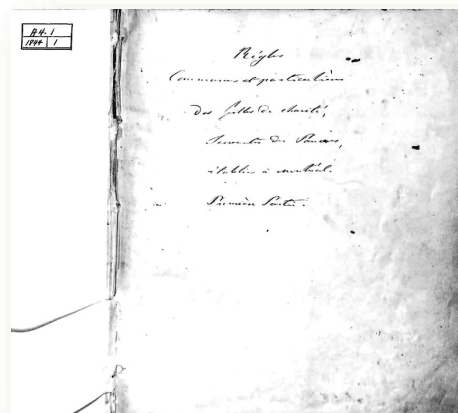 A4.1
1844 1
Règles
Communes et particulières
Des filles de charité,
Servantes des Pauvres,
établies à Montréal.
Première Partie.